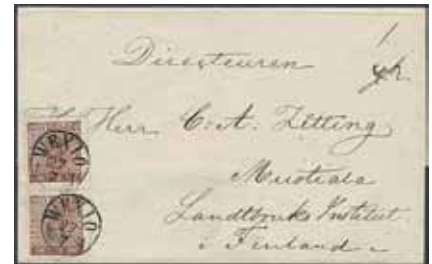 Directeuren
Herr C. A. Zitting
Mustiala
Landtbruks Institut
i Finland
WEXIÖ
WEXIÖ